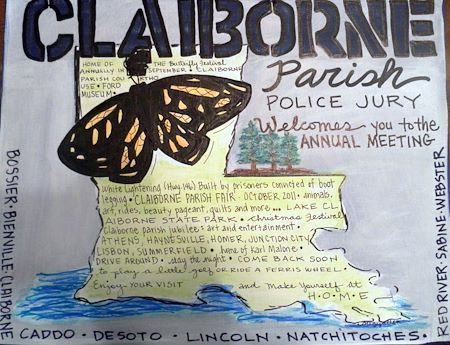 CLAIBORNE
Parish
POLICE JURY
Welcomes you to the
ANNUAL MEETING
HOME OF THE Butterfly Festival
ANNUALLY IN SEPTEMBER • CLAIBORNE
PARISH COU RTHO
USE • FORD
MUSEUM •
White Lightening (Hwy. 146) Built by prisoners convicted of boot
legging • CLAIBORNE PARISH FAIR - OCTOBER 2011 • animals,
art, rides, beauty pageant, quilts and more... LAKE CL
AIBORNE STATE PARK • Christmas Festival
Claiborne parish jubilee: art and entertainment •
ATHENS, HAYNESVILLE, HOMER, JUNCTION CITY,
LISBON, SUMMERFIELD • home of Karl Malone •
DRIVE AROUND • stay the night • COME BACK SOON
to play a little golf OR RIDE A FERRIS WHEEL.
Enjoy YOUR VISIT and Make Yourself at
H•O•M•E
BOSSIER • BIENVILLE CLAIBORNE
CADDO • DESOTO • LINCOLN • NATCHITOCHES •
RED RIVER • SABINE • WEBSTER